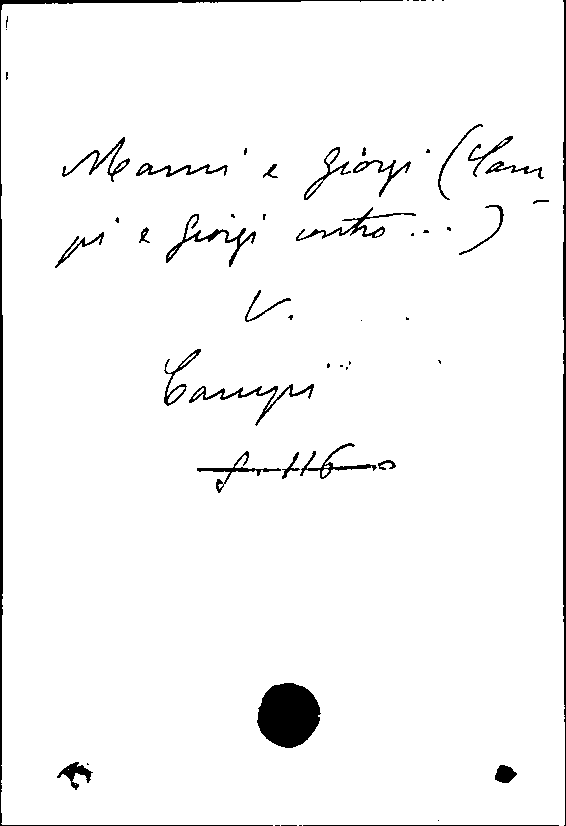 Manni e Giorgi (Cam-
pi e Giorgi contro...)
V.
Campi
f. 116